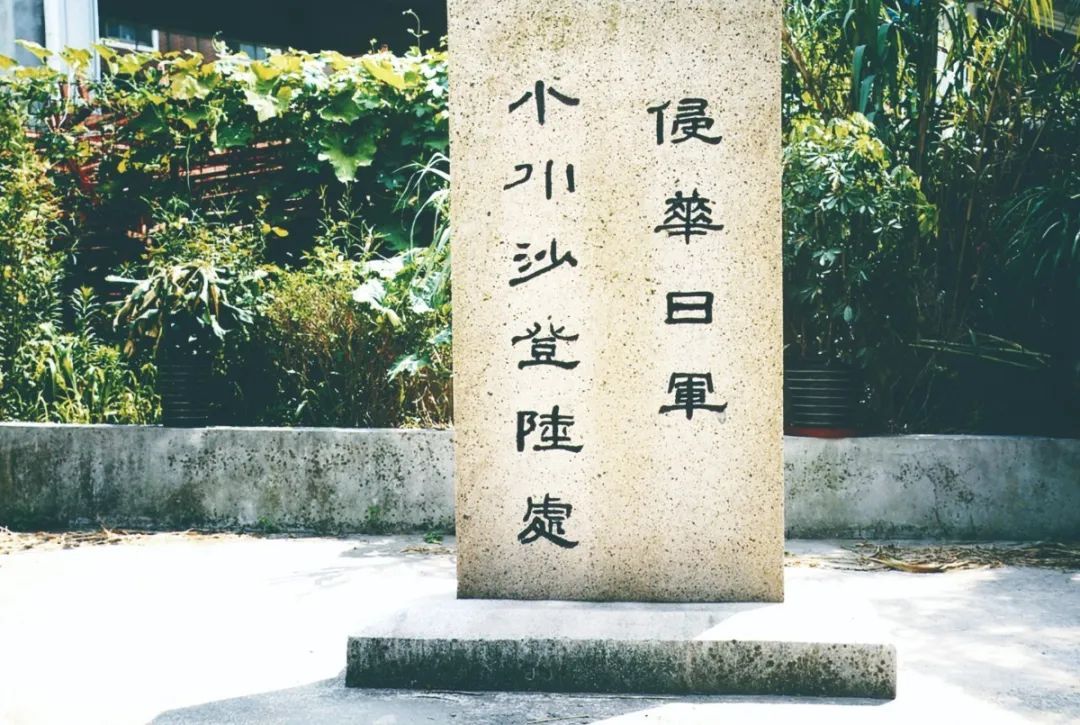 侵華日軍
小川沙登陸處